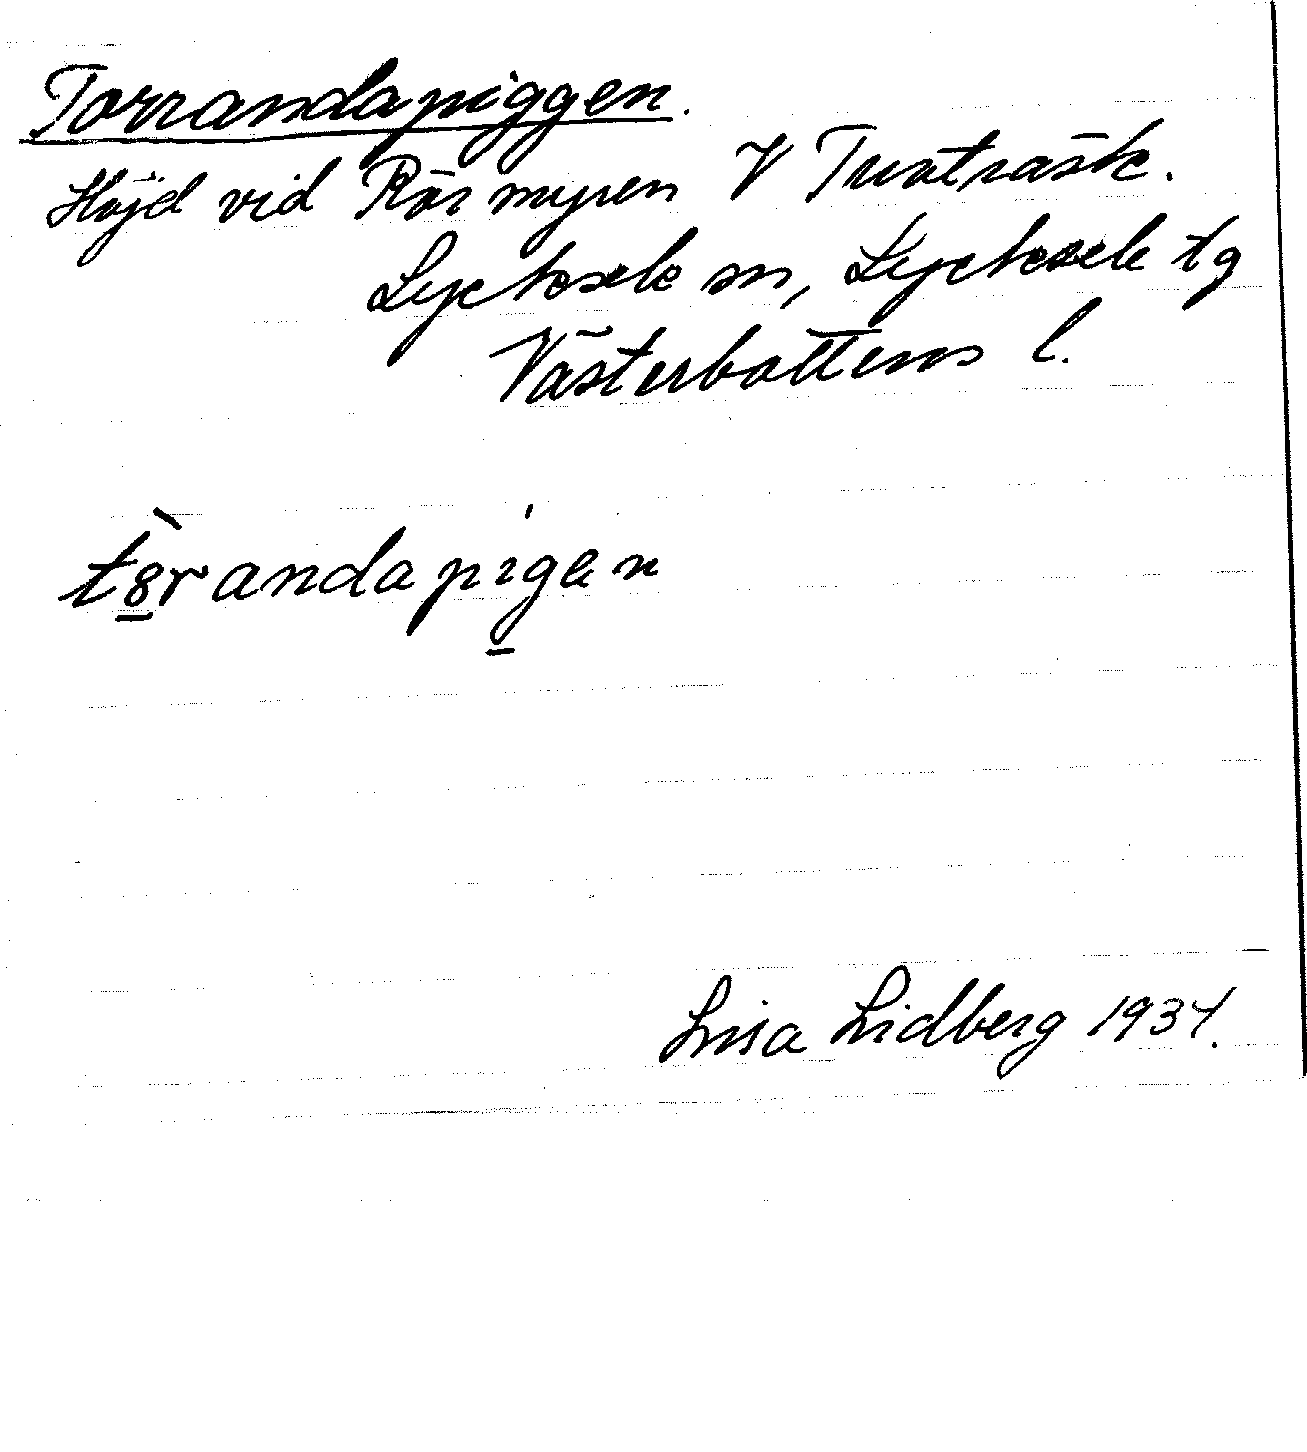 Torrandapiggen.
Höjd vid Rörmyren V Tuvträsk.
Lycksele sn, Lycksele tg
Västerbottens l.
tȣ̀randapıgen
Lisa Lidberg 1934.